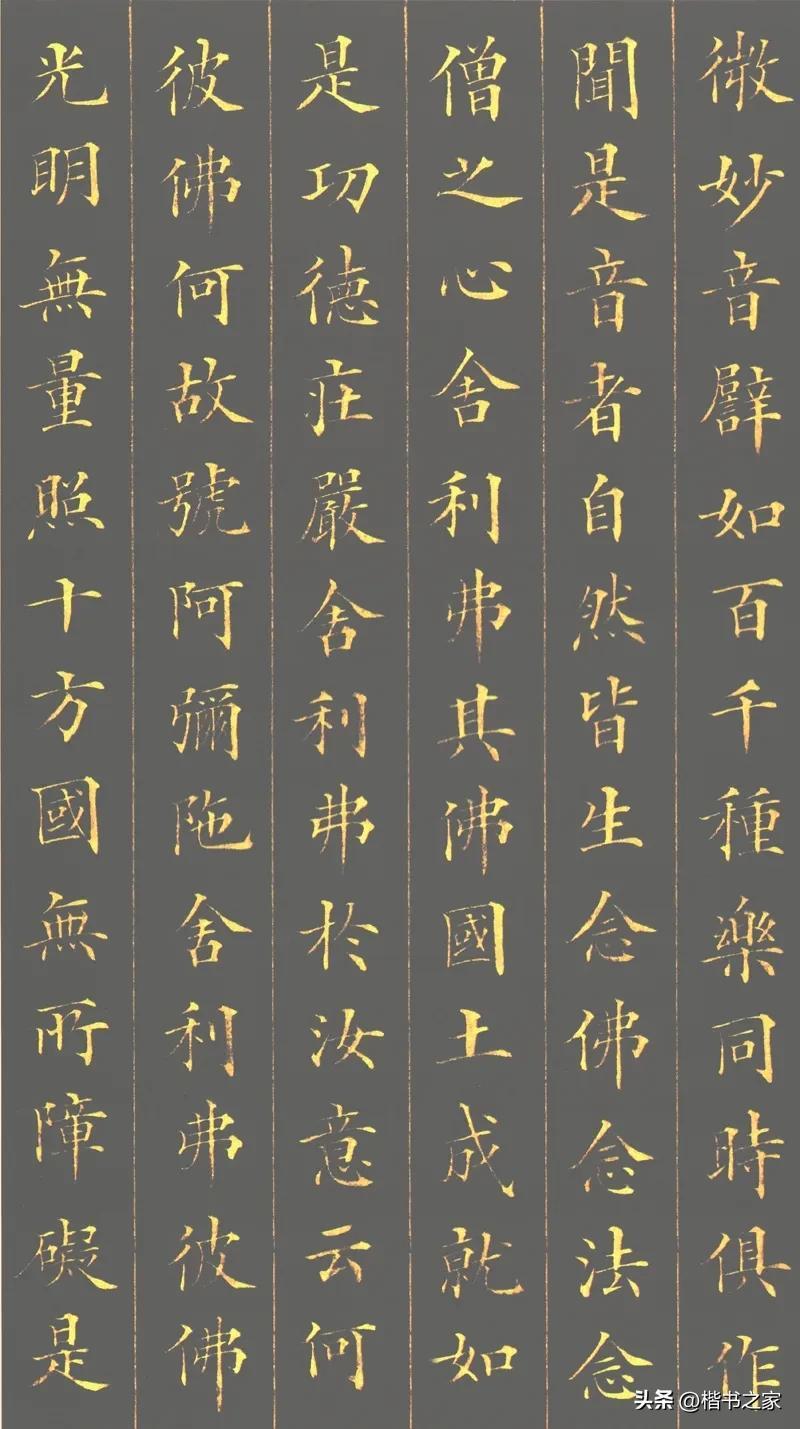 微妙音譬如百千種樂同時俱作
聞是音者自然皆生念佛念法念
僧之心舍利弗其佛國土成就如
是功德莊嚴舍利弗於汝意云何
彼佛何故號阿彌陁舍利弗彼佛
光明無量照十方國無所障礙是
头条 @楷书之家